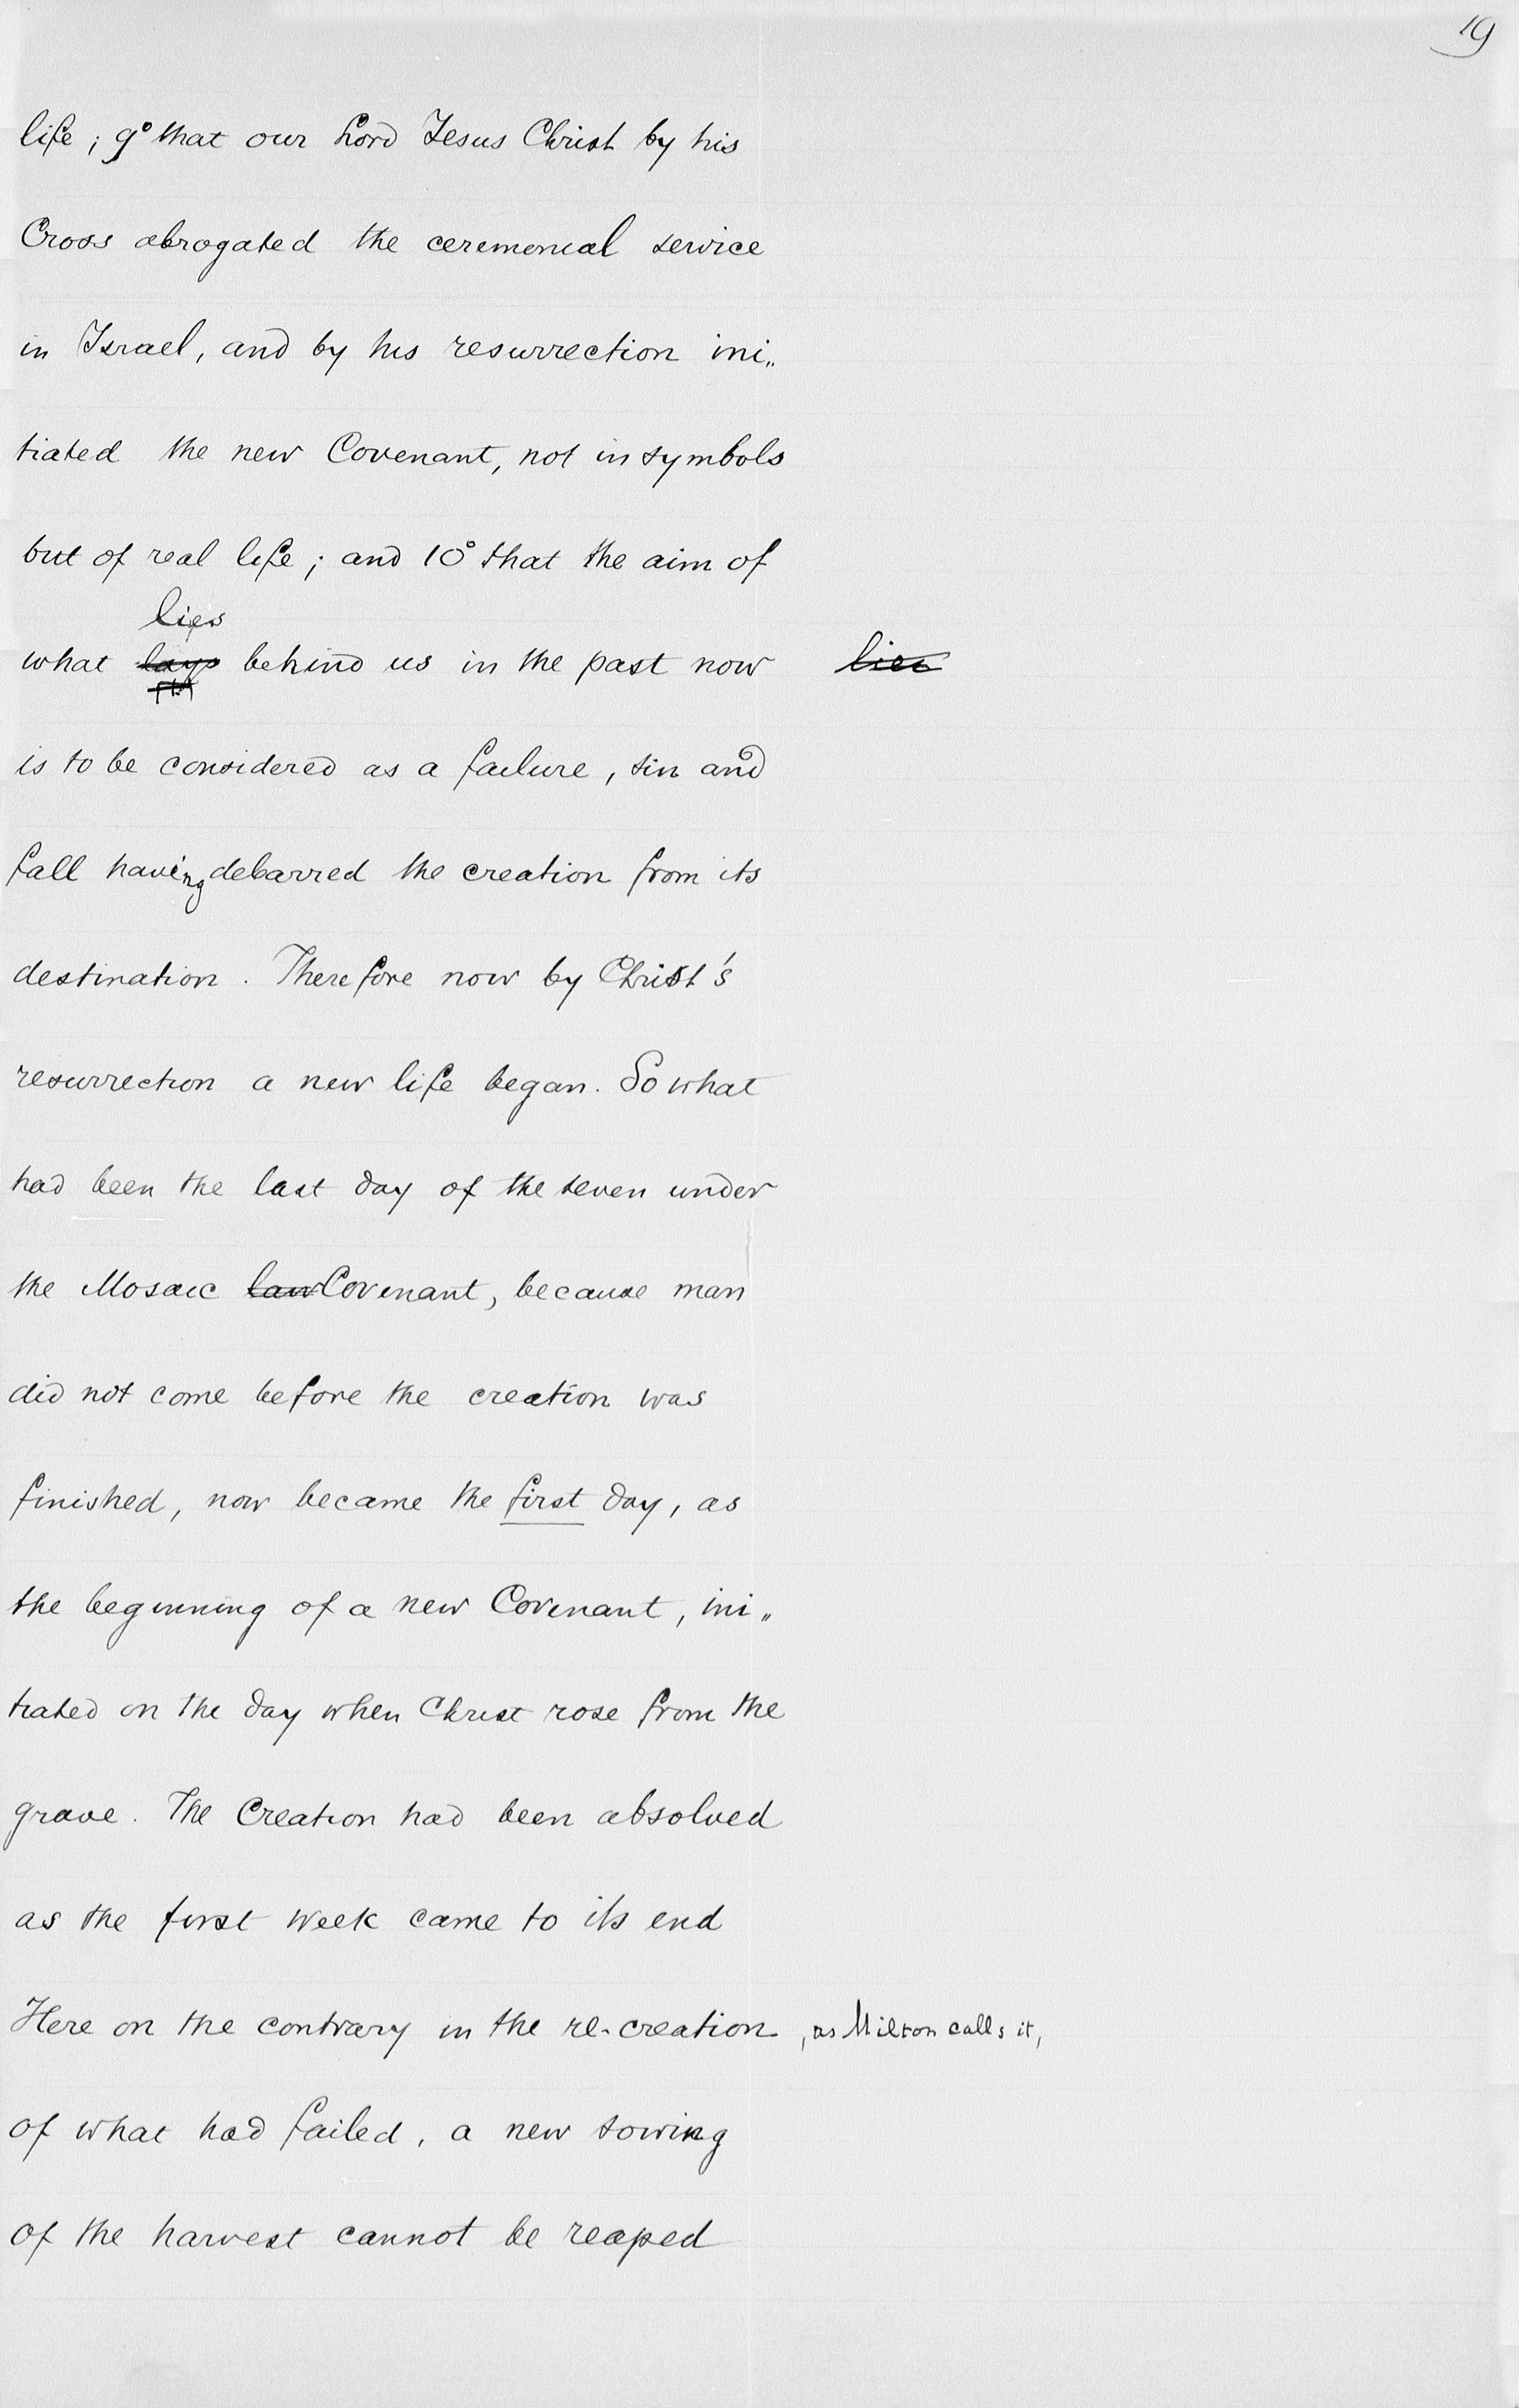 19
life; 9° that our Lord Jesus Christ by his
Cross abrogated the ceremonial service
in Israel, and by his resurrection ini„
tiated the new Covenant, not in symbols
but of real life; and 10° that the aim of
lies
what lays behind us in the past now lies
is to be considered as a failure, sin and
fall having debarred the creation from its
destination. Therefore now by Christ's
resurrection a new life began. So what
had been the last day of the seven under
the Mosaic law Covenant, because man
did not come before the creation was
finished, now became the first day, as
the beginning of a new Covenant, ini„
tiated on the day when Christ rose from the
grave. The Creation had been absolved
as the first week came to its end
Here on the contrary in the re-creation, as Milton calls it,
of what had failed, a new sowing
of the harvest cannot be reaped